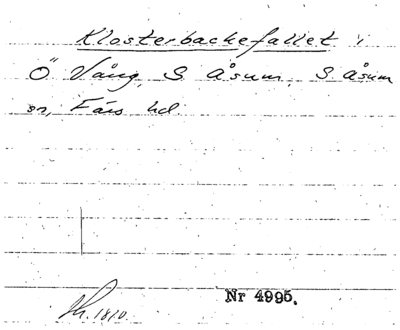 Klosterbackefallet i
Ö Vång, S Åsum, S Åsum
sn, Färs hd.
Nr 4995.